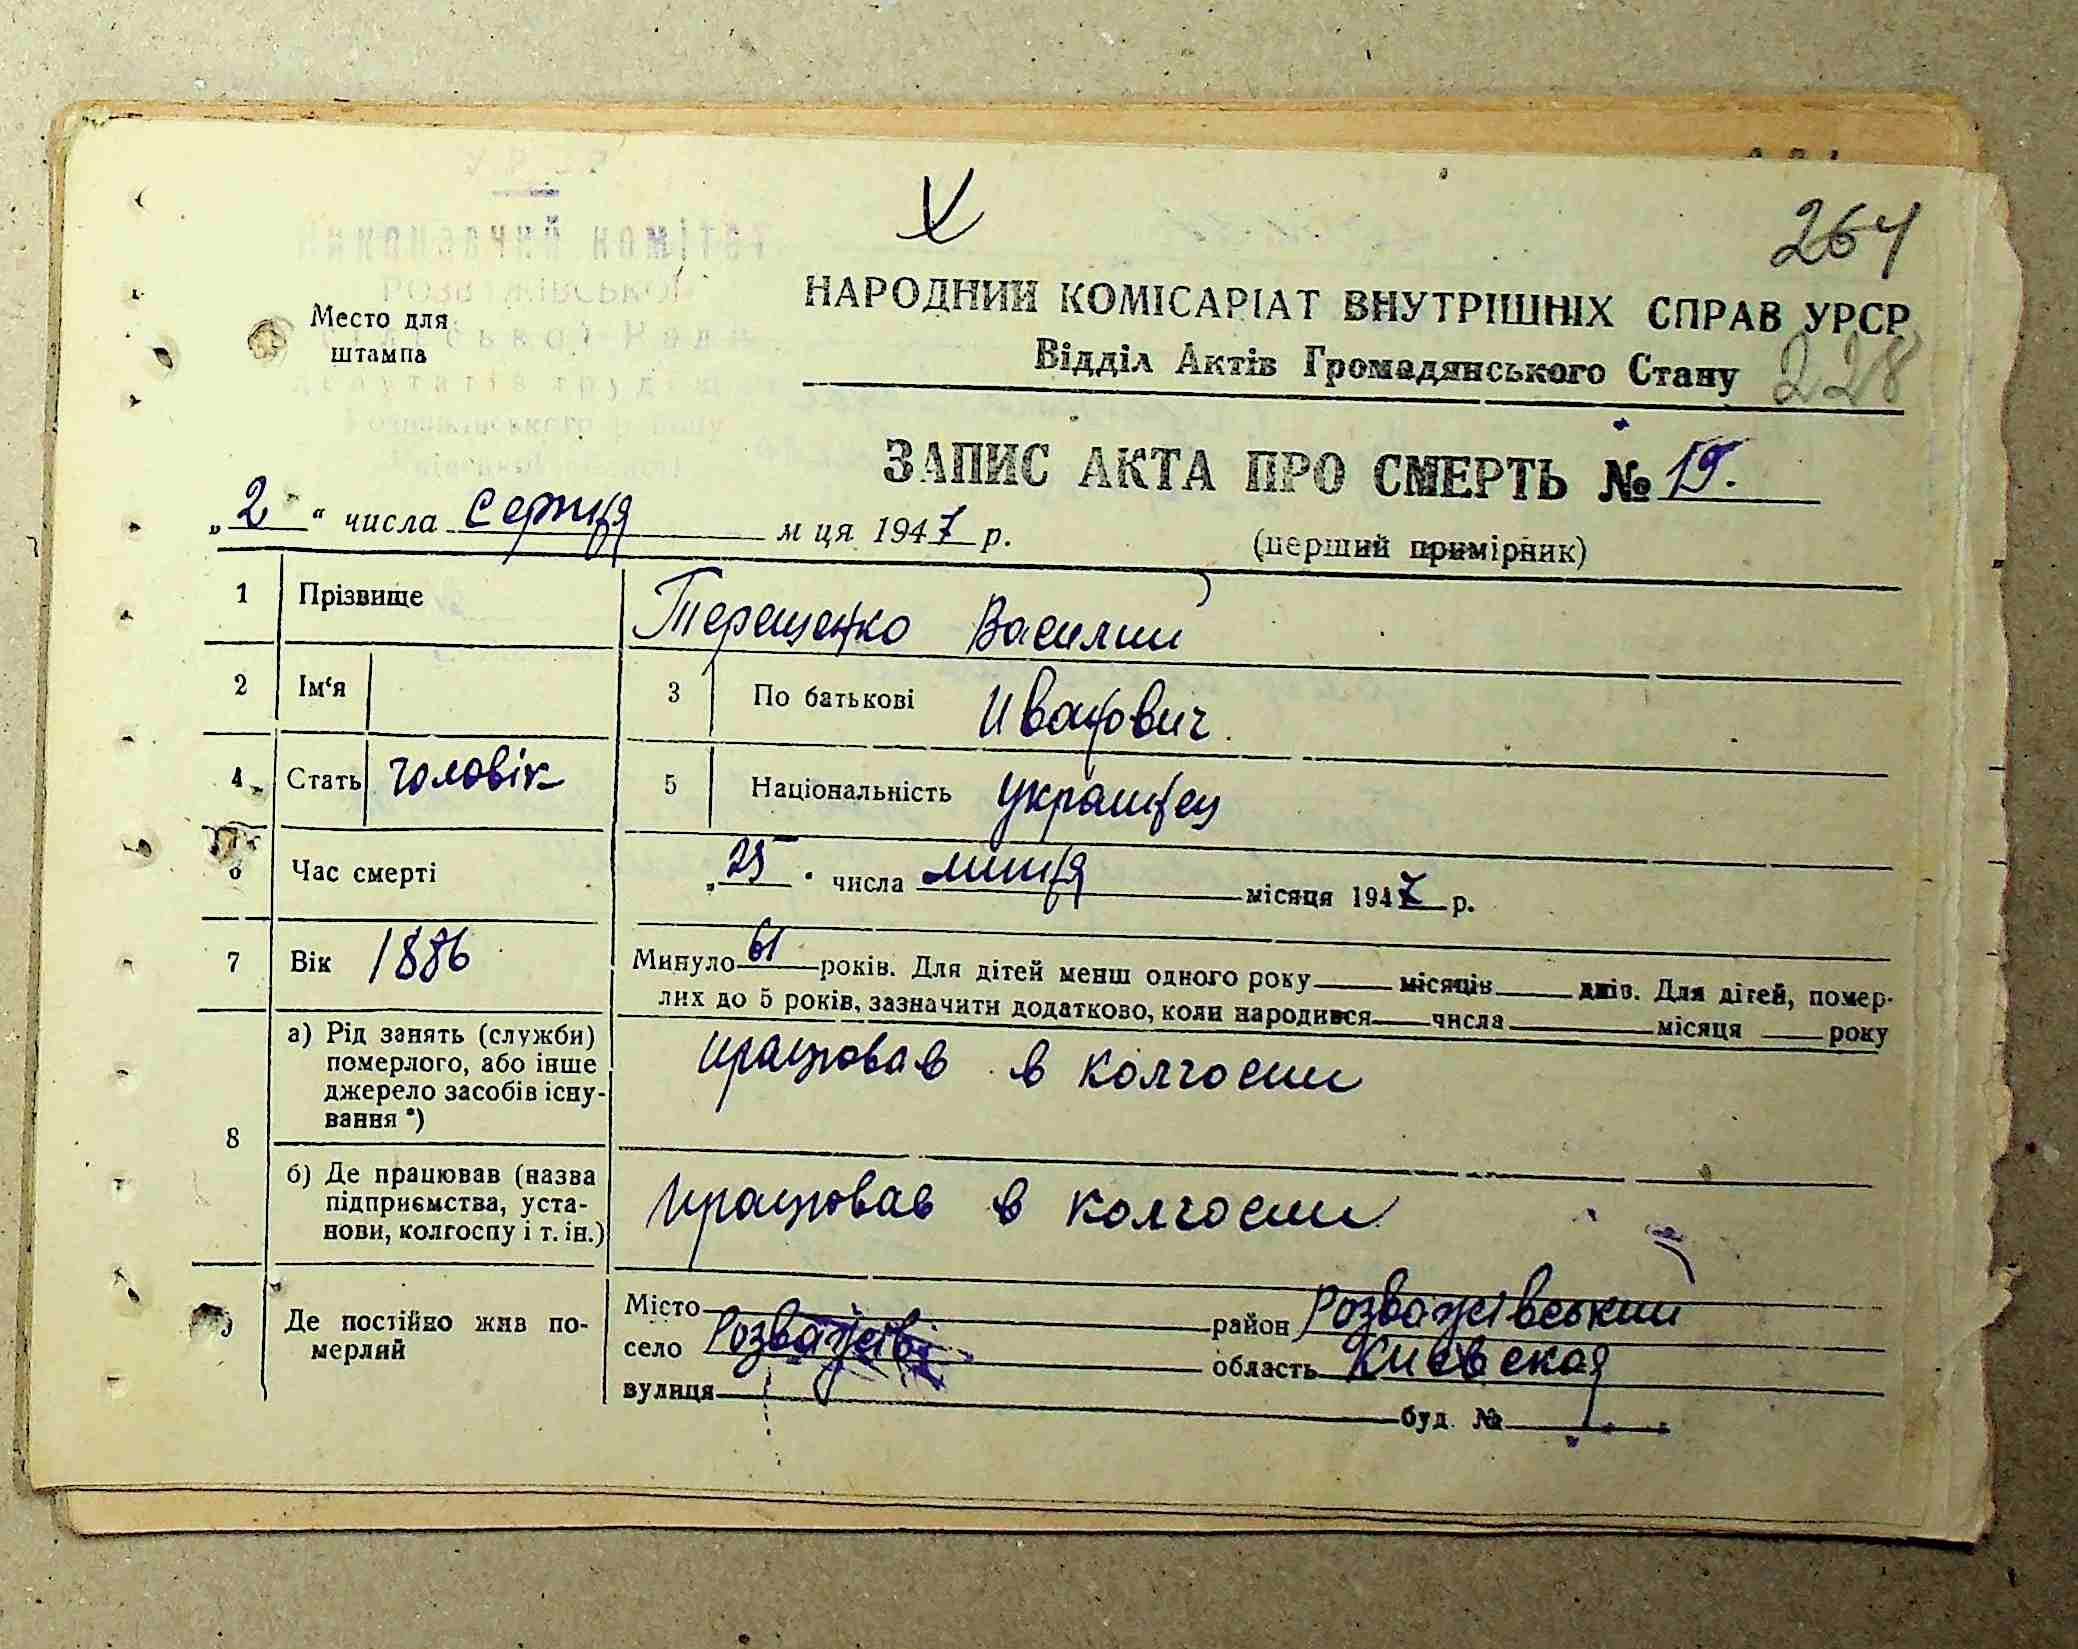 УРСР
Виконавчий комітет
Розважівської
сільської Ради
депутатів трудящ
Розважівського району
Київської області
V
264
Место для
штампа
НАРОДНИЙ КОМІСАРІАТ ВНУТРІШНІХ СПРАВ УРСР
Відділ Актів Громадянського Стану
228
ЗАПИС АКТА ПРО СМЕРТЬ № 19.
„2“ числа серпця м ця 1947 р.
(перший примірник)
1 Прізвище Терещенко Василий
2 Ім‘я 3 По батькові Иванович.
4 Стать чоловік 5 Національність украинец
6 Час смерті „25. числа липця місяця 1947 р.
7 Вік 1886 Минуло 61 років. Для дітей менш одного року місяців днів. Для дітей, помер-
лих до 5 років, зазначити додатково, коли народився числа місяця року
8 а) Рід занять (служби)
померлого, або інше
джерело засобів існу-
вання *)
працював в колгоспи
б) Де працював (назва
підприємства, уста-
нови, колгоспу і т. ін.)
працював в колгоспи
9 Де постійно жив по-
мерлий
Місто район Розважівський
село Розважів область Киевская
вулиця буд. №